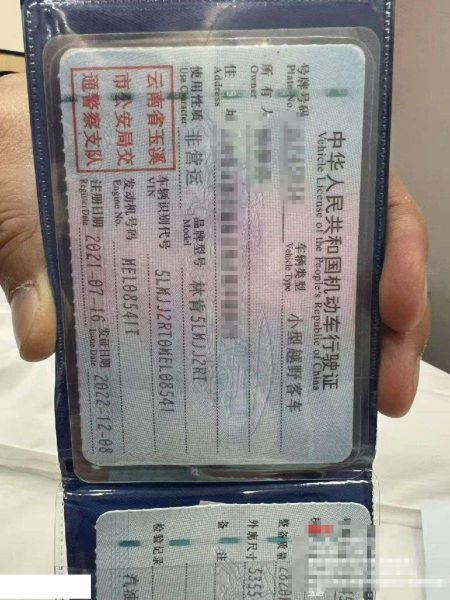 中华人民共和国机动车行驶证
Vehicle License of the People's Republic of China
号牌号码
Plate No.
车辆类型 小型越野客车
Vehicle Type
所有人
Owner
住址
使用性质 非营运
Use Character
品牌型号 林肯5LMJJ2RT
Model
云南省玉溪
市公安局交
通警察支队
车辆识别代号 5LMJJ2RT0MEL08541
VIN
发动机号码 MEL08541T
Engine No.
注册日期 2021-07-16
Register Date
发证日期 2022-12-08
Issue Date
整备质量
外廓尺寸 5355
备注
检验记录
汽油